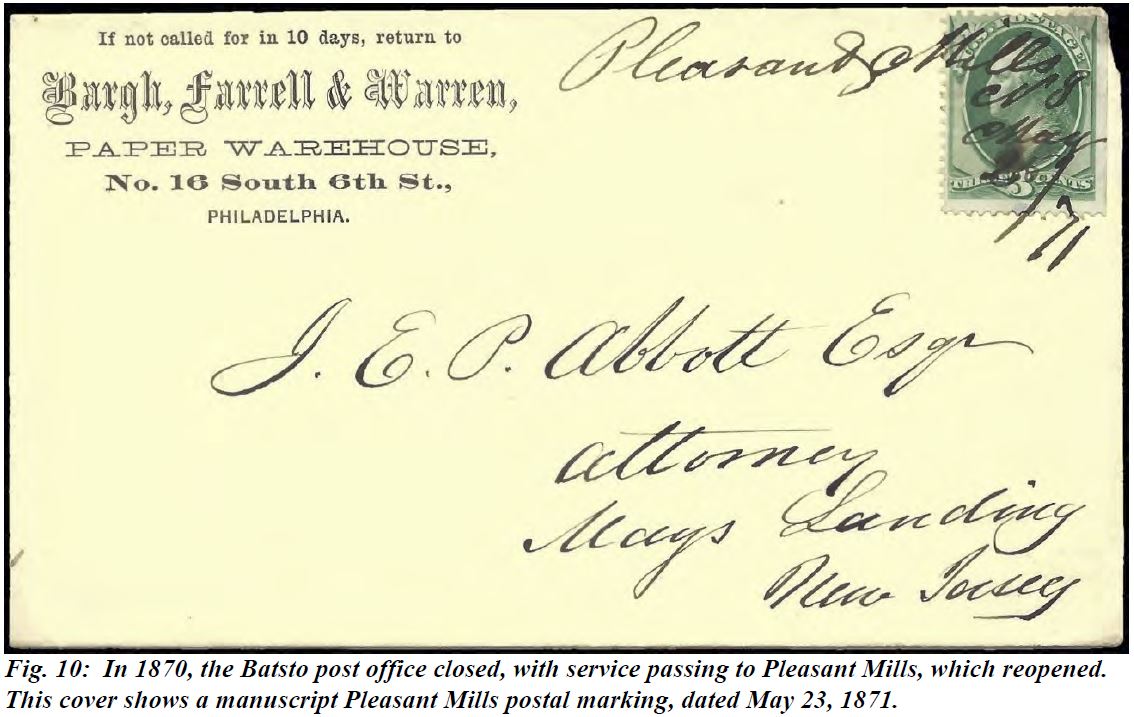 If not called for in 10 days, return to
Bargh, Farrell & Warren,
PAPER WAREHOUSE,
No. 16 South 6th St.,
PHILADELPHIA.
Pleasant Mills
NJ
May
71
J. E. P. Abbott Esqr
Attorney
Mays Landing
New Jersey
Fig. 10: In 1870, the Batsto post office closed, with service passing to Pleasant Mills, which reopened.
This cover shows a manuscript Pleasant Mills postal marking, dated May 23, 1871.